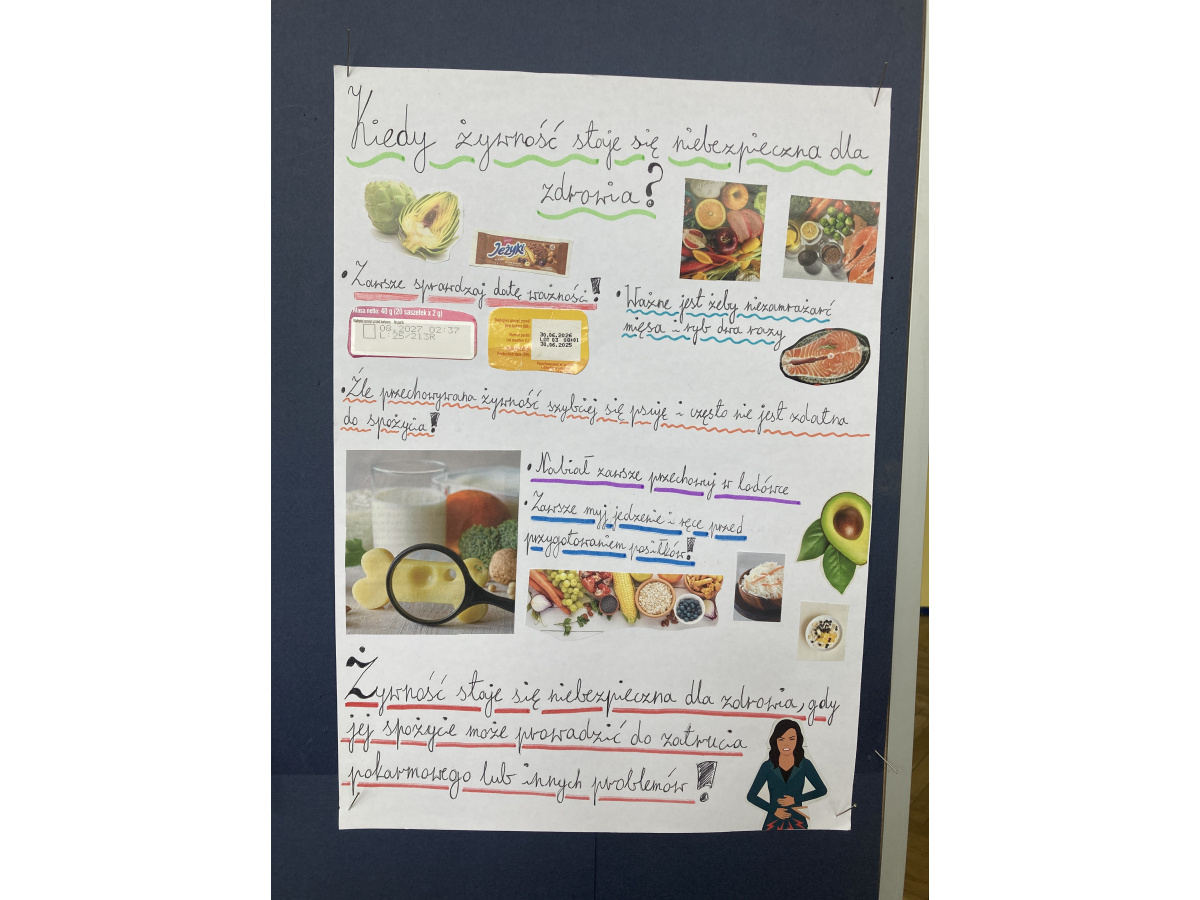 Kiedy żywność staje się niebezpieczna dla
zdrowia?
Jeżyki
• Zawsze sprawdzaj datę ważności!
Masa netto: 40 g (20 saszetek x 2 g)
08.2027 02:37
L:25/213R
30.06.2026
LOT 03 00:01
30.06.2025
• Ważne jest żeby niezamrażarć
mięsa i ryb dwa razy
• Źle przechowywana żywność szybciej się psuje i często nie jest zdatna
do spożycia!
• Nabiał zawsze przechowuj w lodówce
• Zawsze myj jedzenie i ręce przed
przygotowaniem posiłków!
Żywność staje się niebezpieczna dla zdrowia, gdy
jej spożycie może prowadzić do zatrucia
pokarmowego lub innych problemów!